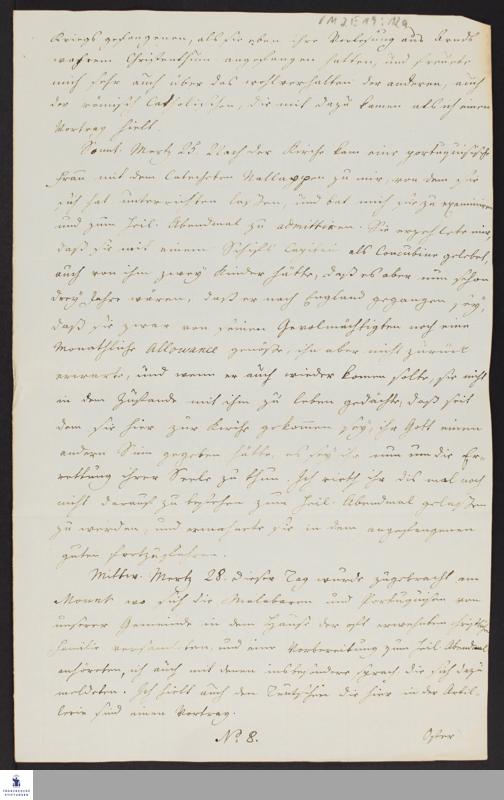 1 M 2 E 19 : 12a
Kriegs gefangenen, als sie eben ihre Vorlesung aus Arnds
wahrem Christenthum angefangen hatten, und freuete
mich sehr auch über das wohlverhalten der anderen, auch
der römisch Catholischen, die mit dazu kamen als ich einen
Vortrag hielt.
Sonnt. Mertz 25. Nach der Kirche kam eine portugiesische
Frau mit dem Catecheten Nallappen zu mir, von dem sie
sich hat unterrichten laßen, und bat mich sie zu examiniren
und zum heil. Abendmal zu admittiren. Sie erzehlete mir,
daß sie mit einem Schiffs Capitain als Concubine gelebet,
auch von ihm zwey Kinder hätte, daß es aber nun schon
drey Jahre wären, daß er nach England gegangen sey,
daß sie zwar von seinen Gevolmächtigten noch eine
Monathliche Allowance genöße, ihn aber nicht zurück
erwarte, und wenn er auch wieder kommen solte, sie nicht
in dem Zustande mit ihm zu leben gedächte, daß seit
dem sie hier zur Kirche gekommen sey, ihr Gott einen
andern Sinn gegeben hätte, es sey ihr nun um die Er-
rettung ihrer Seele zu thun. Ich rieth ihr dis mal noch
nicht darauf zu bestehen zum heil. Abendmal gelaßen
zu werden, und ermahnete sie in dem angefangenen
guten fortzufahren.
Mittw. Mertz 28. dieser Tag wurde zugebracht am
Mount wo sich die Malabaren und Portugiesen von
unserer Gemeinde in dem Hause der oft erwehnten
Familie versamleten, und eine Vorbereitung zum heil. Abendmal
anhöreten, ich auch mit denen insbesondere sprach die sich dazu
meldeten. Ich hielt auch den Teutschen die hier in der Artil-
lerie sind einen Vortrag.
No. 8.
Oster
FRANCKESCHE
STIFTUNGEN